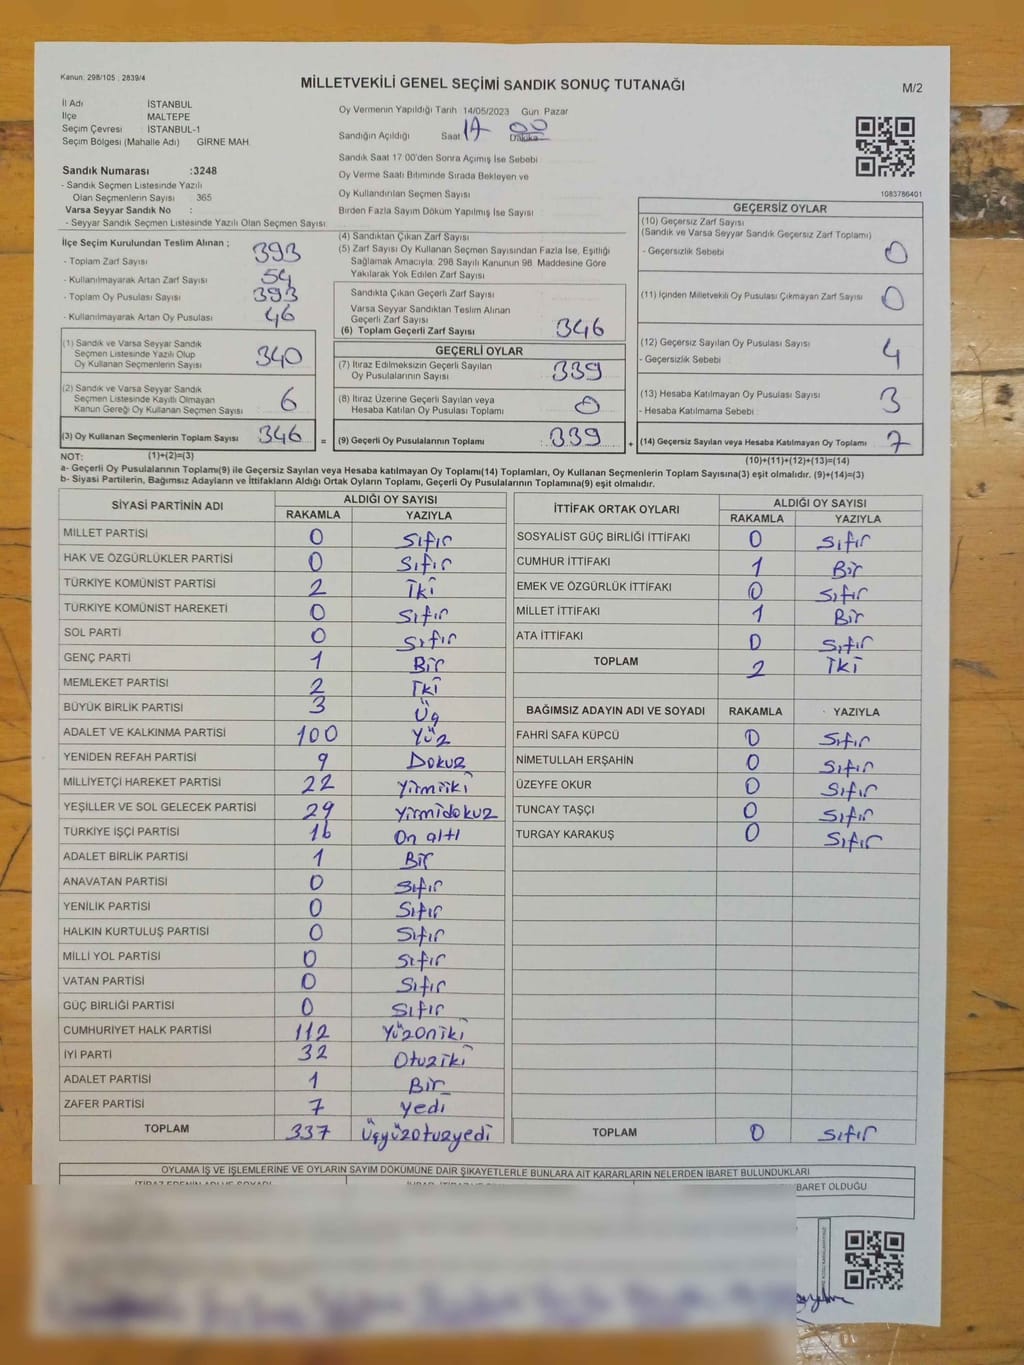 Kanun: 298/105 : 2839/4
MİLLETVEKİLİ GENEL SEÇİMİ SANDIK SONUÇ TUTANAĞI
M/2
İl Adı İSTANBUL
İlçe MALTEPE
Seçim Çevresi : İSTANBUL-1
Seçim Bölgesi (Mahalle Adı) GİRNE MAH.
Sandık Numarası :3248
- Sandık Seçmen Listesinde Yazılı
Olan Seçmenlerin Sayısı : 365
Varsa Seyyar Sandık No :
- Seyyar Sandık Seçmen Listesinde Yazılı Olan Seçmen Sayısı
Oy Vermenin Yapıldığı Tarih 14/05/2023 Gün Pazar
Sandığın Açıldığı Saat 17 00 Dakika
Sandık Saat 17 00'den Sonra Açımış İse Sebebi
Oy Verme Saati Bitiminde Sırada Bekleyen ve
Oy Kullandırılan Seçmen Sayısı
Birden Fazla Sayım Döküm Yapılmış İse Sayısı
1083786401
İlçe Seçim Kurulundan Teslim Alınan ;
- Toplam Zarf Sayısı 393
- Kullanılmayarak Artan Zarf Sayısı 54
- Toplam Oy Pusulası Sayısı 393
- Kullanılmayarak Artan Oy Pusulası 46
(1) Sandık ve Varsa Seyyar Sandık
Seçmen Listesinde Yazılı Olup
Oy Kullanan Seçmenlerin Sayısı 340
(2) Sandık ve Varsa Seyyar Sandık
Seçmen Listesinde Kayıtlı Olmayan
Kanun Gereği Oy Kullanan Seçmen Sayısı 6
(3) Oy Kullanan Seçmenlerin Toplam Sayısı 346 =
(4) Sandıktan Çıkan Zarf Sayısı
(5) Zarf Sayısı Oy Kullanan Seçmen Sayısından Fazla İse, Eşitliği
Sağlamak Amacıyla, 298 Sayılı Kanunun 98. Maddesine Göre
Yakılarak Yok Edilen Zarf Sayısı
Sandıkta Çıkan Geçerli Zarf Sayısı
Varsa Seyyar Sandıktan Teslim Alınan
Geçerli Zarf Sayısı
(6) Toplam Geçerli Zarf Sayısı 346
GEÇERLİ OYLAR
(7) İtiraz Edilmeksizin Geçerli Sayılan
Oy Pusulalarının Sayısı 339
(8) İtiraz Üzerine Geçerli Sayılan veya
Hesaba Katılan Oy Pusulası Toplamı 0
(9) Geçerli Oy Pusulalarının Toplamı 339 +
GEÇERSİZ OYLAR
(10) Geçersiz Zarf Sayısı
(Sandık ve Varsa Seyyar Sandık Geçersiz Zarf Toplamı)
- Geçersizlik Sebebi 0
(11) İçinden Milletvekili Oy Pusulası Çıkmayan Zarf Sayısı 0
(12) Geçersiz Sayılan Oy Pusulası Sayısı
- Geçersizlik Sebebi 4
(13) Hesaba Katılmayan Oy Pusulası Sayısı
- Hesaba Katılmama Sebebi 3
(14) Geçersiz Sayılan veya Hesaba Katılmayan Oy Toplamı 7
NOT: (1)+(2)=(3) (10)+(11)+(12)+(13)=(14)
a- Geçerli Oy Pusulalarının Toplamı(9) ile Geçersiz Sayılan veya Hesaba katılmayan Oy Toplamı(14) Toplamları, Oy Kullanan Seçmenlerin Toplam Sayısına(3) eşit olmalıdır. (9)+(14)=(3)
b- Siyasi Partilerin, Bağımsız Adayların ve İttifakların Aldığı Ortak Oyların Toplamı, Geçerli Oy Pusulalarının Toplamına(9) eşit olmalıdır.
SİYASİ PARTİNİN ADI ALDIĞI OY SAYISI
RAKAMLA YAZIYLA
MİLLET PARTİSİ 0 Sıfır
HAK VE ÖZGÜRLÜKLER PARTİSİ 0 Sıfır
TÜRKİYE KOMÜNİST PARTİSİ 2 İki
TÜRKİYE KOMÜNİST HAREKETİ 0 Sıfır
SOL PARTİ 0 Sıfır
GENÇ PARTİ 1 Bir
MEMLEKET PARTİSİ 2 İki
BÜYÜK BİRLİK PARTİSİ 3 Üç
ADALET VE KALKINMA PARTİSİ 100 Yüz
YENİDEN REFAH PARTİSİ 9 Dokuz
MİLLİYETÇİ HAREKET PARTİSİ 22 Yirmiiki
YEŞİLLER VE SOL GELECEK PARTİSİ 29 Yirmidokuz
TÜRKİYE İŞÇİ PARTİSİ 16 On altı
ADALET BİRLİK PARTİSİ 1 Bir
ANAVATAN PARTİSİ 0 Sıfır
YENİLİK PARTİSİ 0 Sıfır
HALKIN KURTULUŞ PARTİSİ 0 Sıfır
MİLLİ YOL PARTİSİ 0 Sıfır
VATAN PARTİSİ 0 Sıfır
GÜÇ BİRLİĞİ PARTİSİ 0 Sıfır
CUMHURİYET HALK PARTİSİ 112 Yüzoniki
İYİ PARTİ 32 Otuziki
ADALET PARTİSİ 1 Bir
ZAFER PARTİSİ 7 Yedi
TOPLAM 337 Üçyüzotuzyedi
İTTİFAK ORTAK OYLARI ALDIĞI OY SAYISI
RAKAMLA YAZIYLA
SOSYALİST GÜÇ BİRLİĞİ İTTİFAKI 0 Sıfır
CUMHUR İTTİFAKI 1 Bir
EMEK VE ÖZGÜRLÜK İTTİFAKI 0 Sıfır
MİLLET İTTİFAKI 1 Bir
ATA İTTİFAKI 0 Sıfır
TOPLAM 2 İki
BAĞIMSIZ ADAYIN ADI VE SOYADI RAKAMLA YAZIYLA
FAHRİ SAFA KÜPCÜ 0 Sıfır
NİMETULLAH ERŞAHİN 0 Sıfır
ÜZEYFE OKUR 0 Sıfır
TUNCAY TAŞÇI 0 Sıfır
TURGAY KARAKUŞ 0 Sıfır
TOPLAM 0 Sıfır
OYLAMA İŞ VE İŞLEMLERİNE VE OYLARIN SAYIM DÖKÜMÜNE DAİR ŞİKAYETLERLE BUNLARA AİT KARARLARIN NELERDEN İBARET BULUNDUKLARI
İBARET OLDUĞU